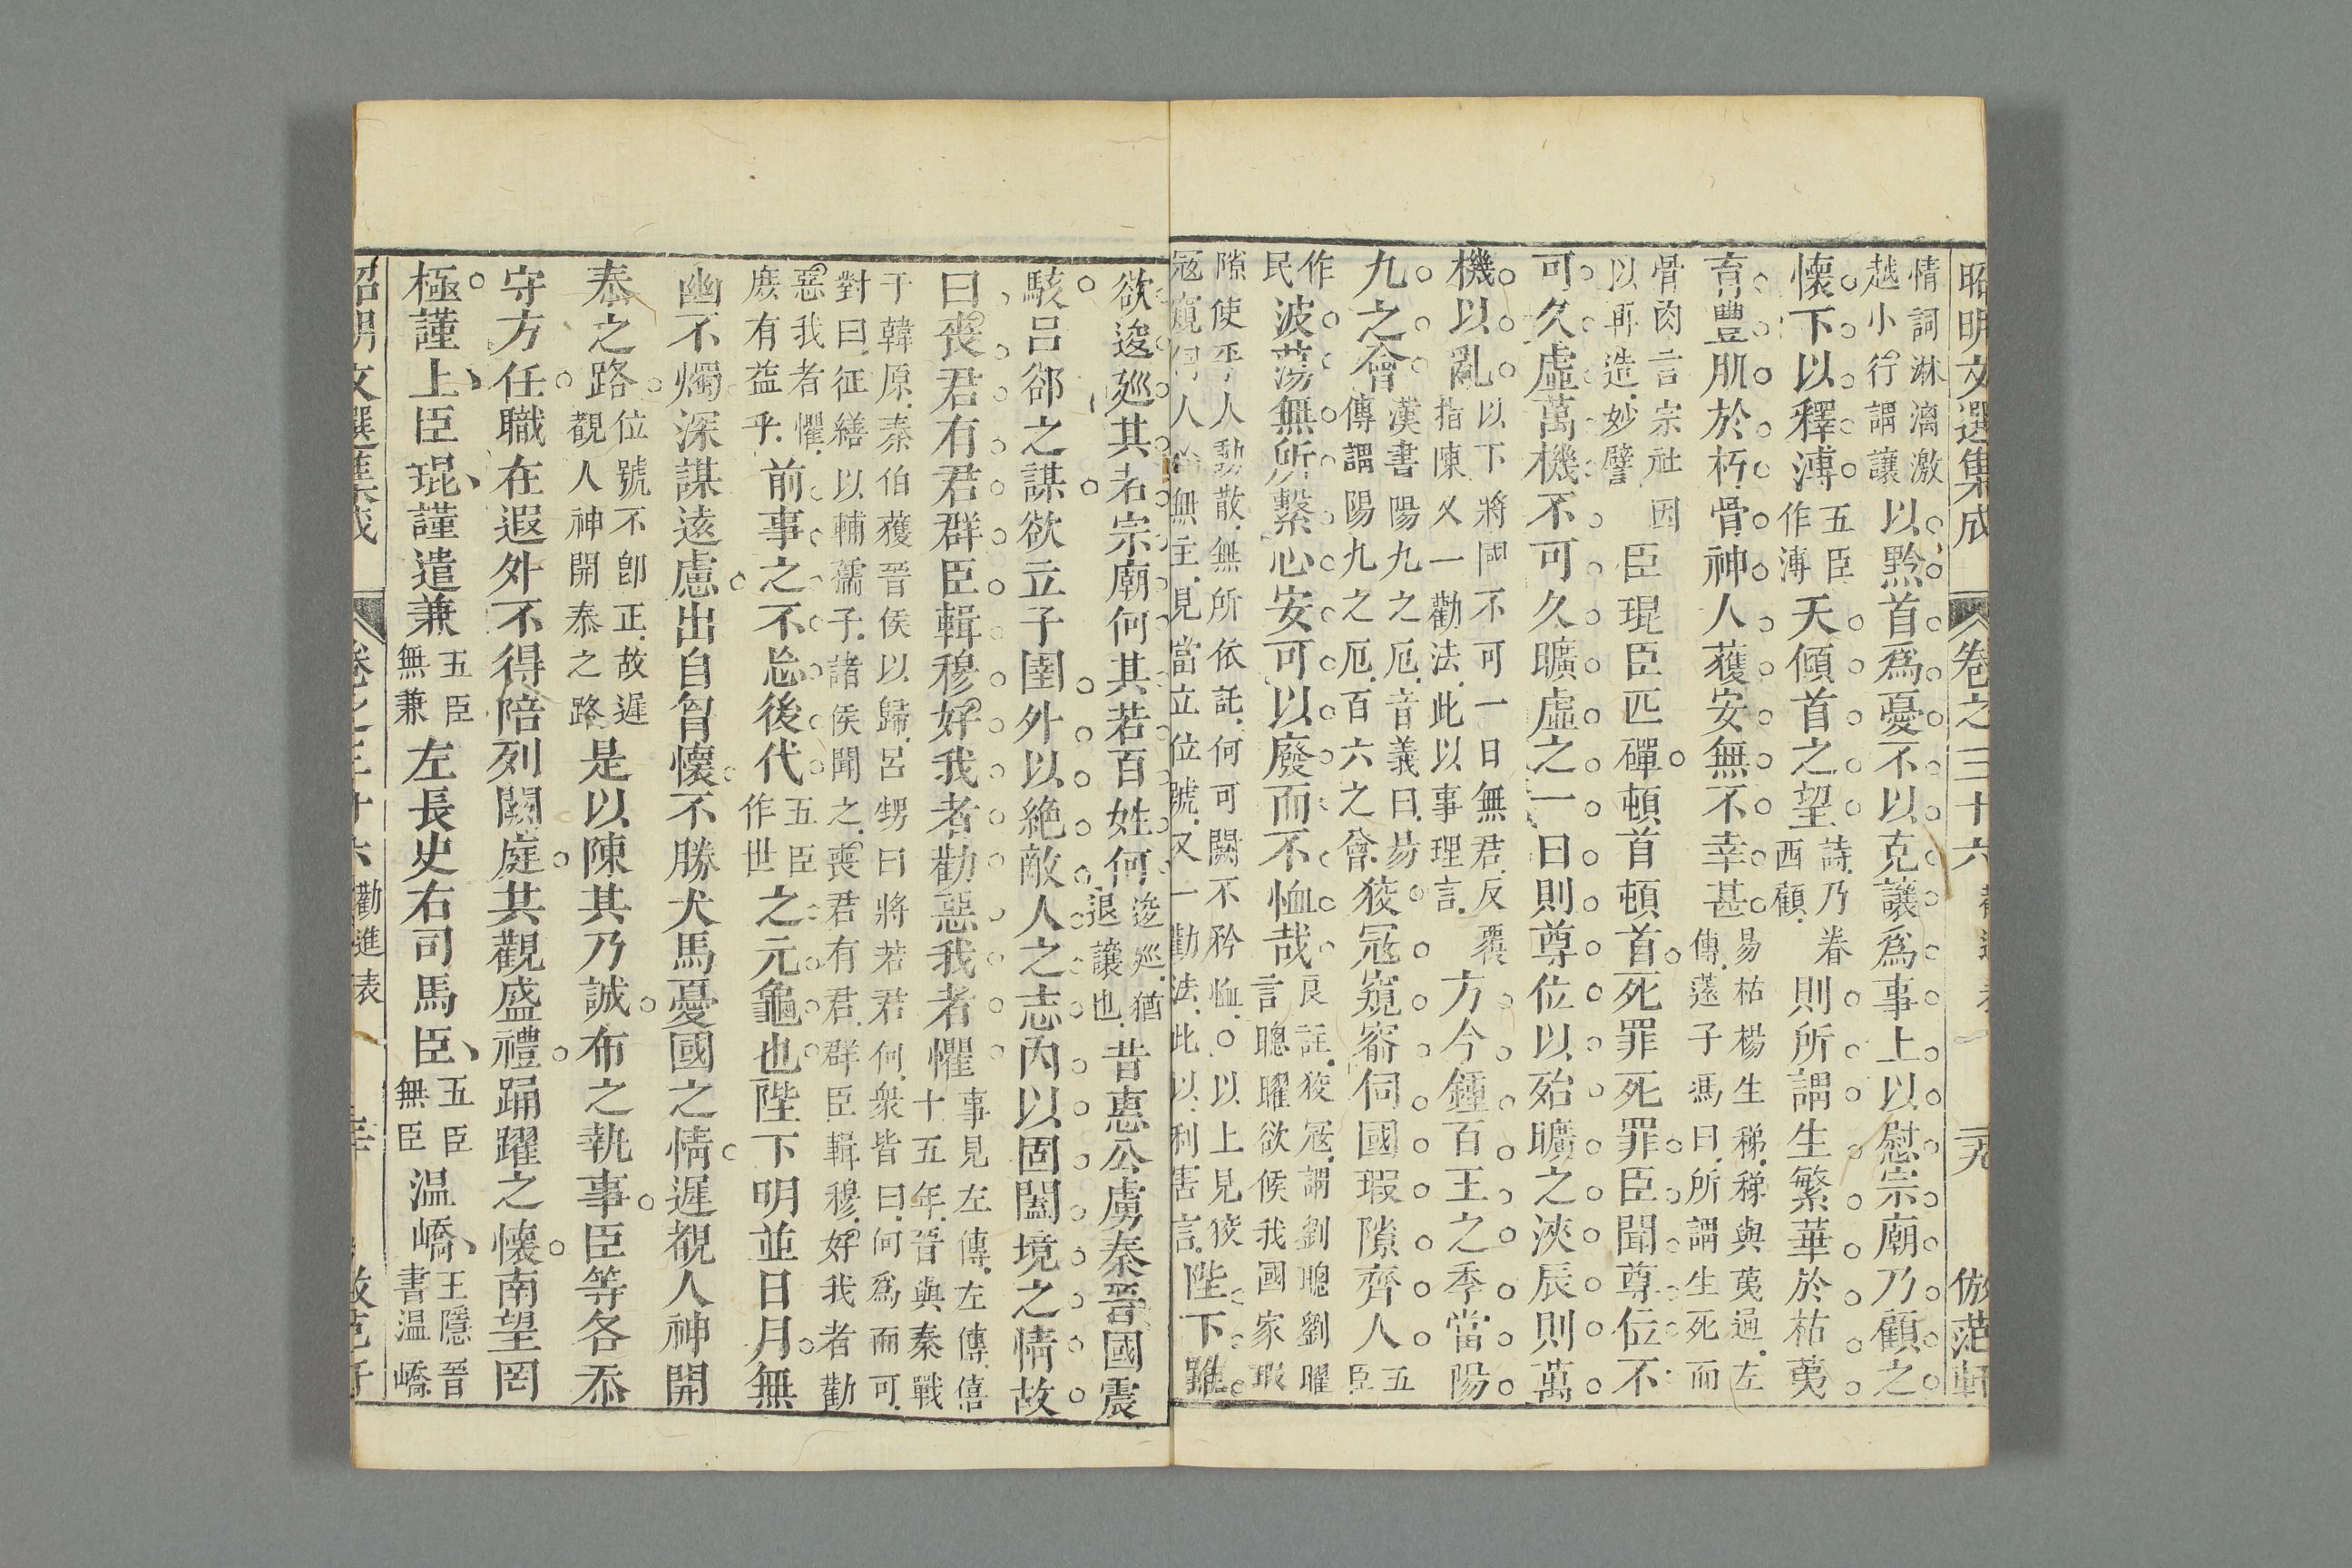 昭明文選集成 卷之三十六 勸進表 一 倣范軒
情詞淋漓激
越小行謂讓
以黔首爲憂不以克讓爲事上以慰宗廟乃顧之
懷下以釋溥
五臣
作溥
天傾首之望
詩乃眷
西顧
則所謂生繁華於枯荑
育豐肌於朽骨神人蒦安無不幸甚
易枯楊生稊稊與荑通左
傳薳子馮曰所謂生死而
骨肉言宗社因
以再造妙譬
臣琨臣匹磾頓首頓首死罪死罪臣聞尊位不
可久虛萬機不可久曠虛之一日則尊位以殆曠之浹辰則萬
機以亂
以下將國不可一日無君反覆
指陳又一勸法此以事理言
方今鍾百王之季當陽
九之會
漢書陽九之厄音義曰易
傳謂陽九之厄百六之會
狡寇窺窬伺國瑕隙齊人
五臣
作民
波蕩無所繫心安可以廢而不恤哉
良註狡寇謂劉聰劉曜
言聰曜欲候我國家瑕
隙使乎人動散無所依託何可闕不矜恤○以上見狡
寇窺伺人心無主見當立位號又一勸法此以利害言
陛下雖
欲逡廵其若宗廟何其若百姓何
逡廵猶
退讓也
昔惠公虜秦晉國震
駭呂郤之謀欲立子圉外以絶敵人之志內以固闔境之情故
曰喪君有君群臣輯穆好我者勸惡我者懼
事見左傳左傳僖
十五年晉與秦戰
于韓原秦伯蒦晉侯以歸呂甥曰將若君何衆皆曰何爲而可
對曰征繕以輔孺子諸侯聞之喪君有君群臣輯穆好我者勸
惡我者懼
庶有益乎
前事之不忘後代
五臣
作世
之元龜也陛下明並日月無
幽不燭深謀遠慮出自胷懷不勝犬馬憂國之情遲覩人神開
泰之路
位號不卽正故遲
覩人神開泰之路
是以陳其乃誠布之執事臣等各忝
守方任職在遐外不得陪列闕庭共觀盛禮踊躍之懷南望罔
極謹上臣琨謹遣兼
五臣
無兼
左長史右司馬臣
五臣
無臣
温嶠
王隱晉
書温嶠
昭明文選集成 卷之三十六 勸進表